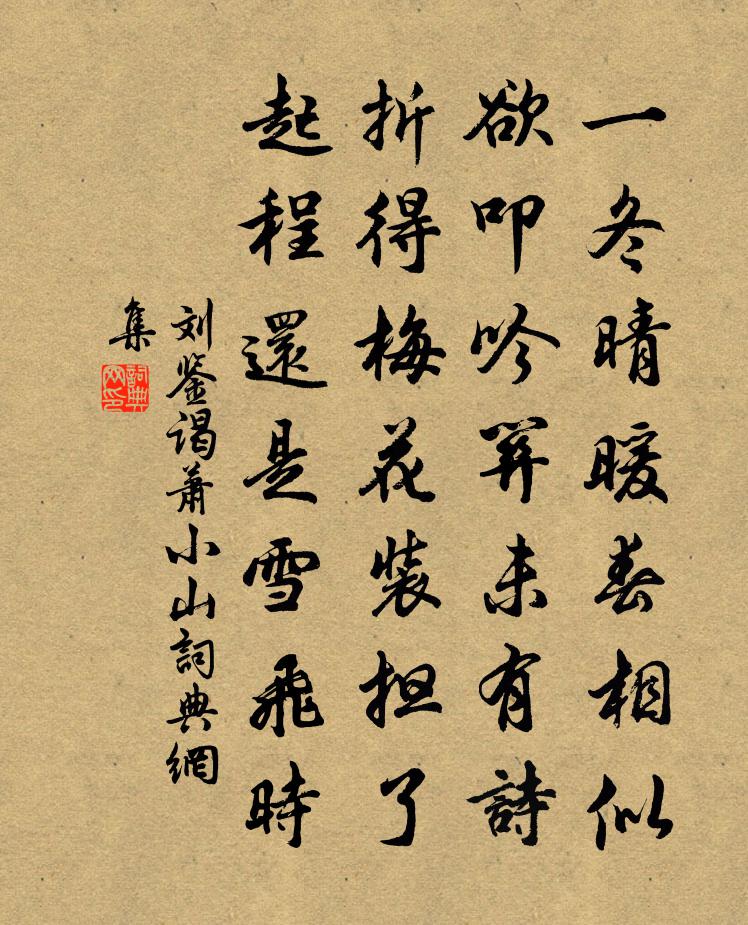 一冬晴暖春相似
欲叩吟關未有詩
折得梅花裝担了
起程還是雪飛時
刘鉴谒蕭小山詞典網
集
詞典
网印